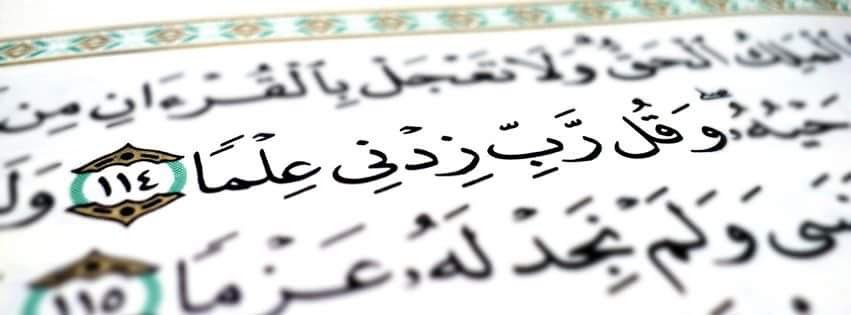 ٱلْمَلِكُ ٱلْحَقُّ ۗ وَلَا تَعْجَلْ بِٱلْقُرْءَانِ مِن
حْيُهُۥ ۖ وَقُل رَّبِّ زِدْنِى عِلْمًا ١١٤ وَلَ
نَسِىَ وَلَمْ نَجِدْ لَهُۥ عَزْمًا ١١٥